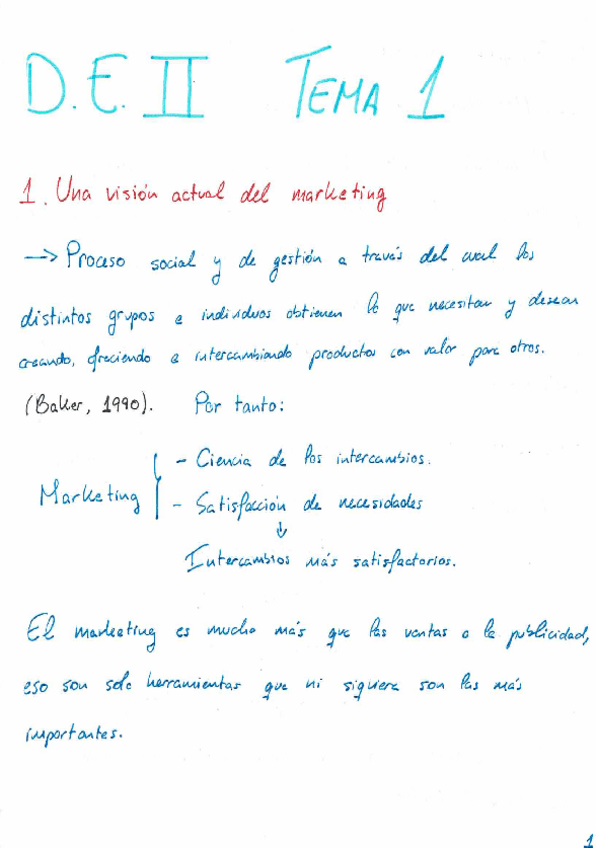 D.E. II TEMA 1
1. Una visión actual del marketing
—> Proceso social y de gestión a través del cual los
distintos grupos e individuos obtienen lo que necesitan y desean
creando, ofreciendo e intercambiando productos con valor para otros.
(Baker, 1990). Por tanto:
- Ciencia de los intercambios.
Marketing
- Satisfacción de necesidades
↓
Intercambios más satisfactorios.
El marketing es mucho más que las ventas o la publicidad,
eso son solo herramientas que ni siquiera son las más
importantes.
1